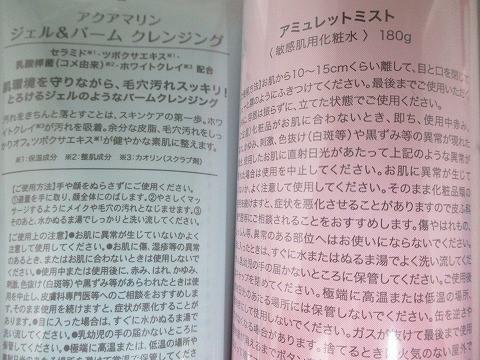 アクアマリン
ジェル&バーム クレンジング
セラミド※1・ツボクサエキス※1・
乳酸桿菌(コメ由来)※2・ホワイトクレイ※3 配合
肌環境を守りながら、毛穴汚れスッキリ!
とろけるジェルのようなバームクレンジング
汚れをきちんと落とすことは、スキンケアの第一歩。ホワ
イトクレイ※3が汚れを吸着。余分な皮脂、毛穴汚れをしっ
かりオフ。ツボクサエキス※1が健やかな素肌に整えます。
※1:保湿成分 ※2:整肌成分 ※3:カオリン(スクラブ剤)
【ご使用方法】手や顔をぬらさずにご使用ください。
①適量を手に取り、顔全体にのばします。②やさしくマッ
サージするようにメイクや毛穴の汚れとなじませます。③
そのあと、水かぬるま湯でしっかりと洗い流してください。
【ご使用上の注意】●お肌に異常が生じていないかよく
注意して使用してください。●お肌に傷、湿疹等の異常
のあるとき、またはお肌に合わないときは使用しないで
ください。●使用中または使用後に、赤み、はれ、かゆみ、
刺激、色抜け(白斑等)や黒ずみ等があらわれたときは使
用を中止し、皮膚科専門医等へのご相談をおすすめしま
す。そのまま使用を続けますと、症状が悪化することがあ
ります。●目に入った場合は、すぐに水かぬるま湯で
洗い流してください。●乳幼児の手の届かないところに
保管してください。●極端に高温または低温の場所、
アミュレットミスト
〈敏感肌用化粧水〉 180g
方法】お肌から10～15cmくらい離して、目と口を閉じて
ように顔にふきつけてください。最後までご使用いただく
に容器は振らずに、立てた状態でご使用ください。
化粧品がお肌に合わないとき、即ち、使用中赤み、
かゆみ、刺激、色抜け(白斑等)や黒ずみ等の異常が現れた
使用したお肌に直射日光があたって上記のような異常が
場合は使用を中止してください。お肌に異常が
かよく注意して使用してください。そのまま化粧品類の
続けますと、症状を悪化させることがありますので皮ふ科
門医等に相談されることをおすすめします。傷やはれもの、
しん等、異常のある部位へはお使いにならないでください。
入ったときは、すぐに水またはぬるま湯でよく洗い流してく
乳幼児の手の届かないところに保管してください。ご使用後
ください。極端に高温または低温の場所、
ある場所には保管しないでください。缶を逆さや
使用しないでください。ガスが抜けて最後まで使用
場合があります。捨てるときは火気のない屋外で